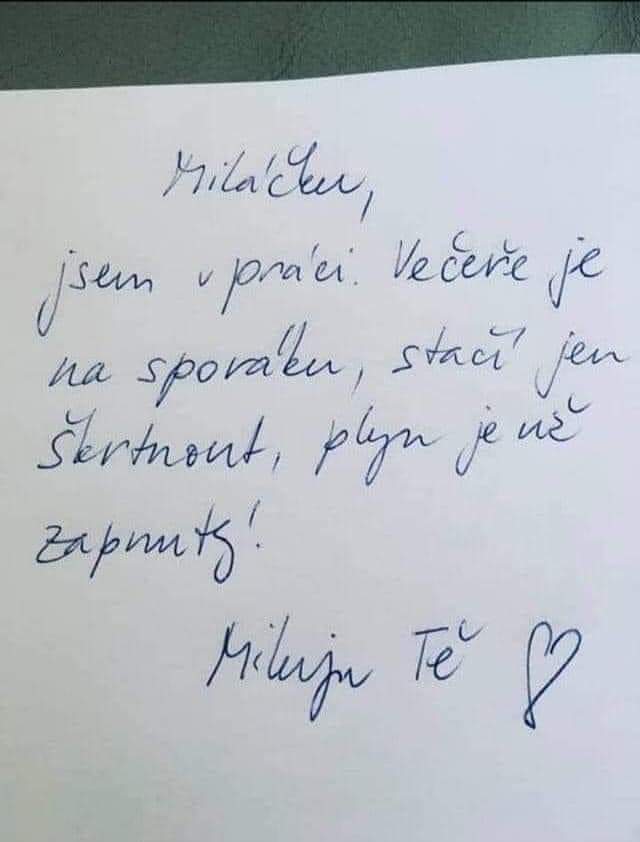 Miláčku,
jsem v práci. Večeře je
na sporáku, stačí jen
škrtnout, plyn je už
zapnutý!
Miluju Tě ♡